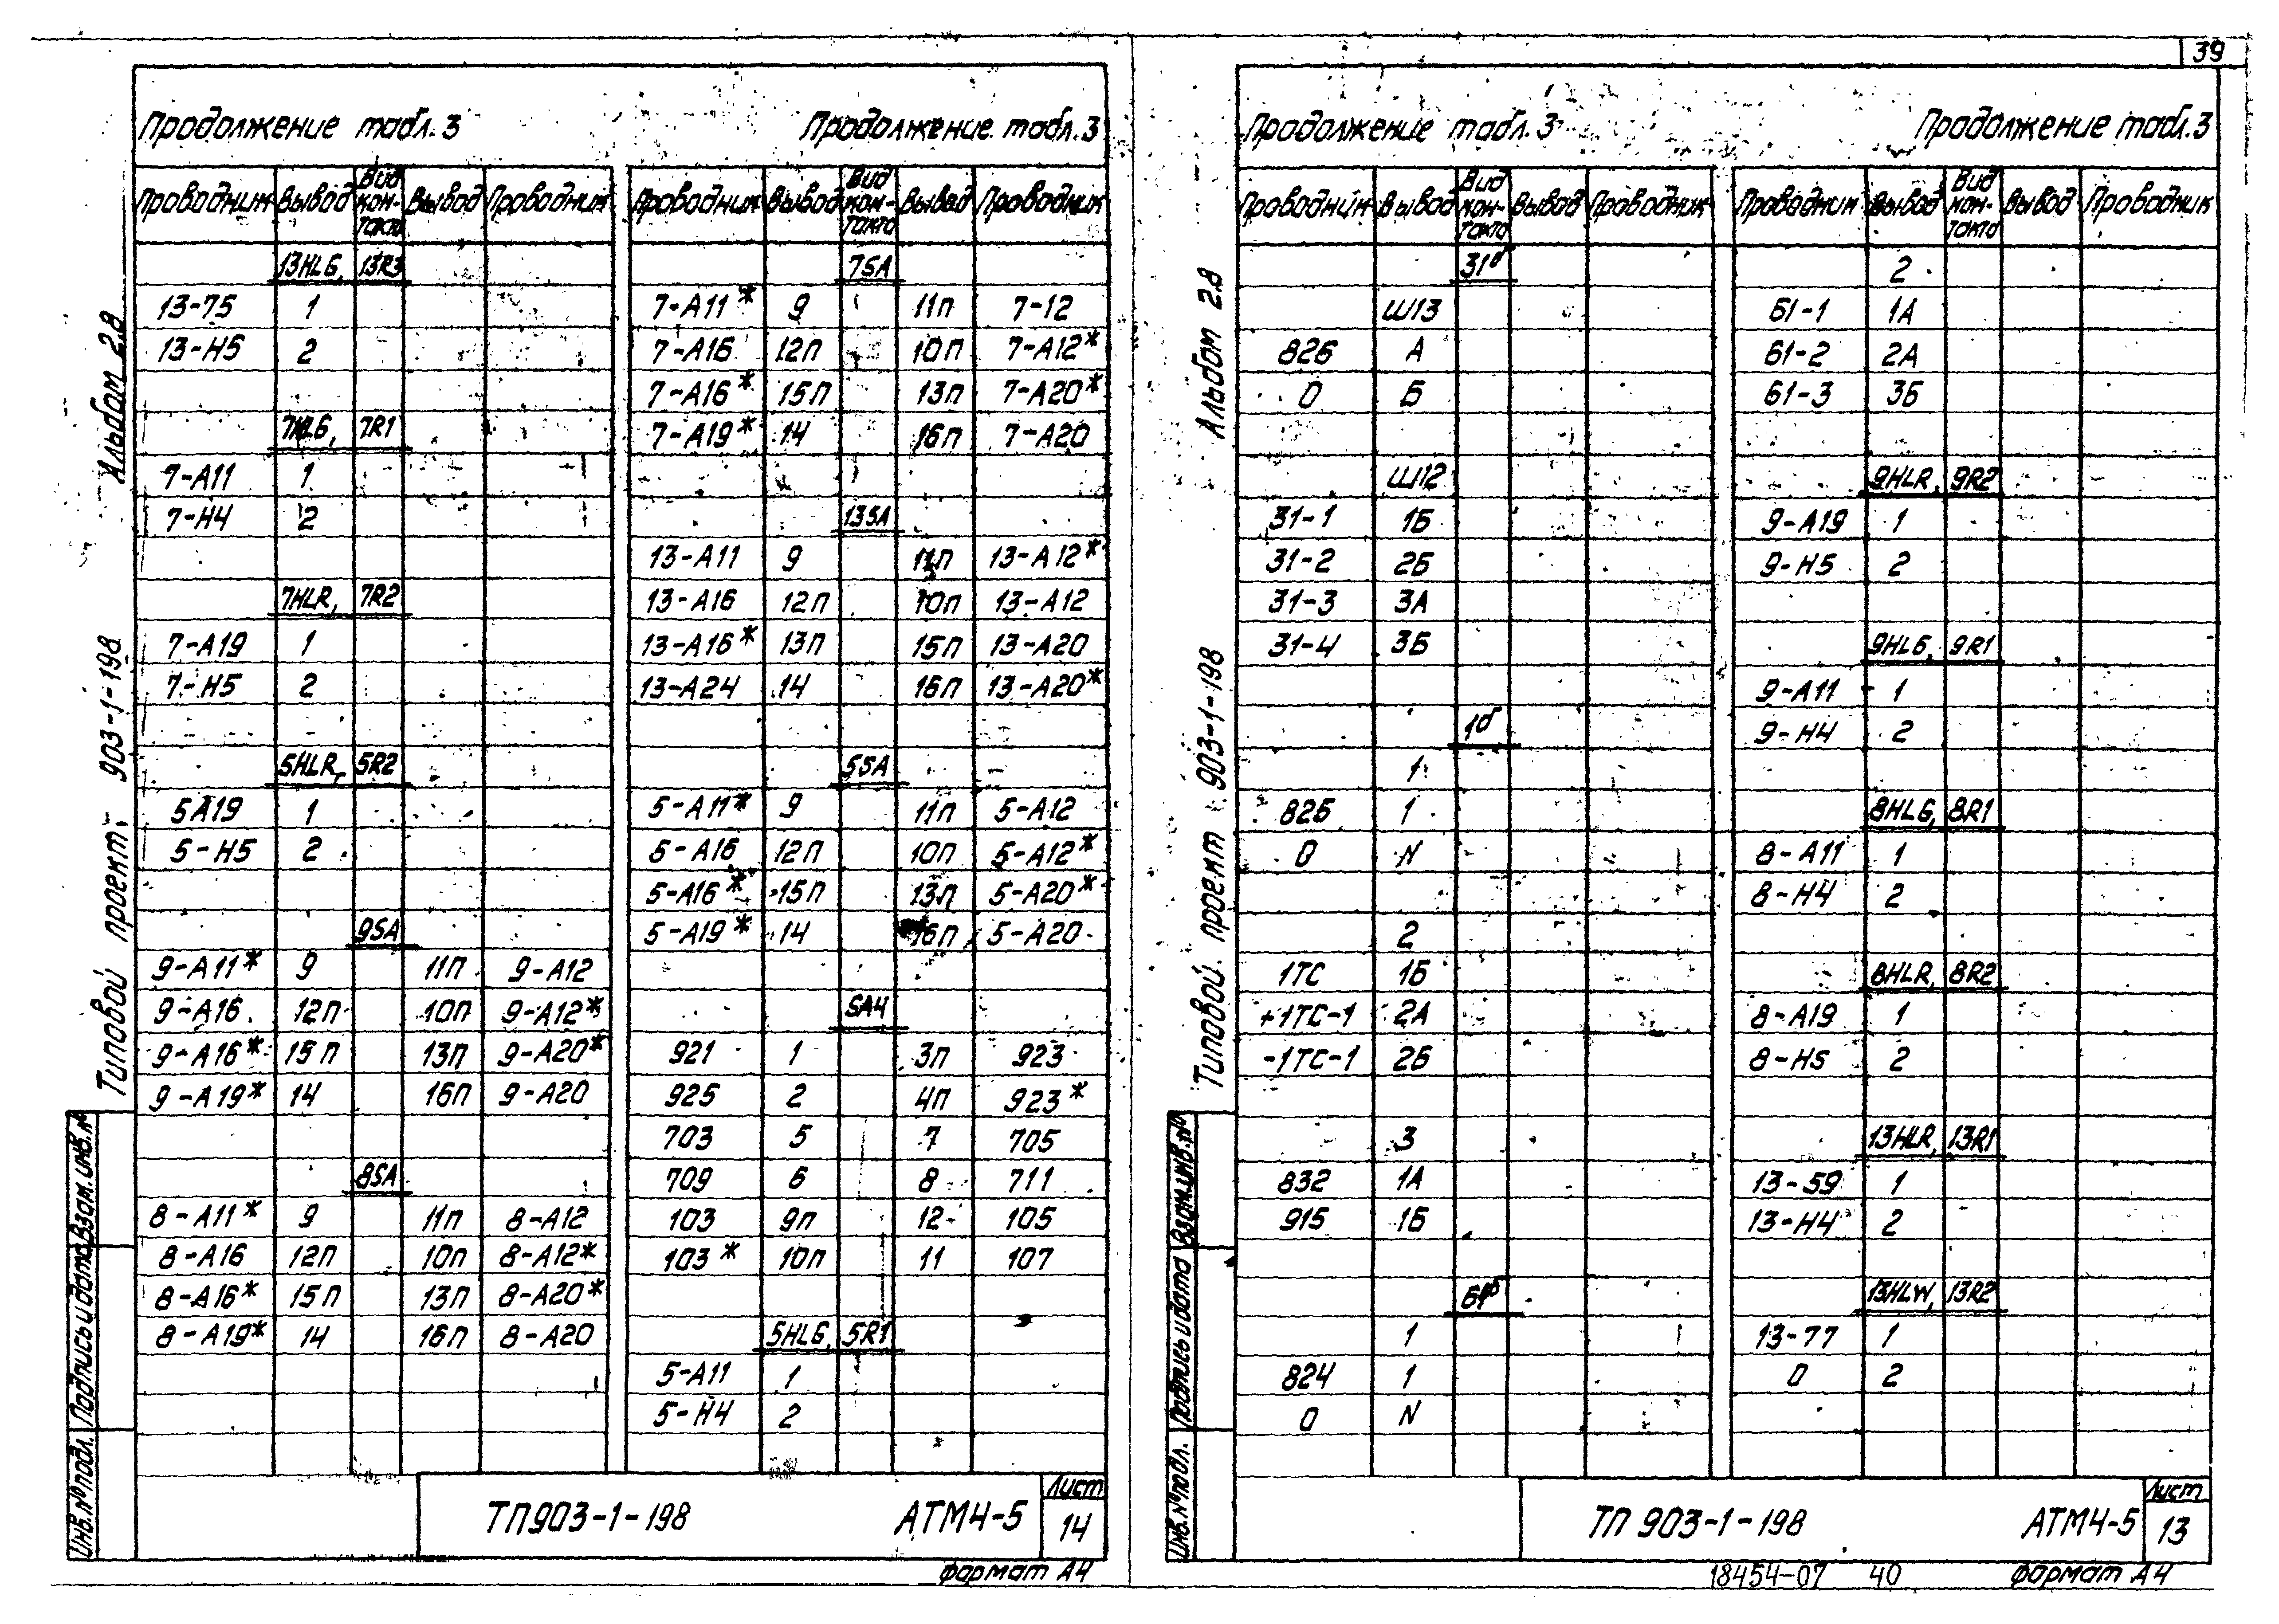 39
Продолжение табл.3
Продолжение табл.3
Проводник Вывод Вид кон-такта Вывод Проводник
13HLG, 13R3
13-75 1
13-H5 2
7HLG, 7R1
7-A11 1
7-H4 2
7HLR, 7R2
7-A19 1
7-H5 2
5HLR, 5R2
5A19 1
5-H5 2
9SA
9-A11* 9 11п 9-A12
9-A16 12п 10п 9-A12*
9-A16* 15п 13п 9-A20*
9-A19* 14 16п 9-A20
8SA
8-A11* 9 11п 8-A12
8-A16 12п 10п 8-A12*
8-A16* 15п 13п 8-A20*
8-A19* 14 16п 8-A20
Проводник Вывод Вид кон-такта Вывод Проводник
7SA
7-A11* 9 11п 7-12
7-A16 12п 10п 7-A12*
7-A16* 15п 13п 7-A20*
7-A19* 14 16п 7-A20
13SA
13-A11 9 11п 13-A12*
13-A16 12п 10п 13-A12
13-A16* 13п 15п 13-A20
13-A24 14 16п 13-A20*
5SA
5-A11* 9 11п 5-A12
5-A16 12п 10п 5-A12*
5-A16* 15п 13п 5-A20*
5-A19* 14 16п 5-A20
SA4
921 1 3п 923
925 2 4п 923*
703 5 7 705
709 6 8 711
103 9п 12 105
103* 10п 11 107
5HLG, 5R1
5-A11 1
5-H4 2
Альбом 2.8
Типовой проект 903-1-198
Инв.№подл. Подпись и дата Взам.инв.№
ТП903-1-198 АТМ4-5 Лист 14
формат А4
Продолжение табл.3
Продолжение табл.3
Проводник Вывод Вид кон-такта Вывод Проводник
31в
Ш13
826 А
0 Б
Ш12
31-1 1Б
31-2 2Б
31-3 3А
31-4 3Б
1б
1
826 1
0 N
2
1ТС 1Б
+1ТС-1 2А
-1ТС-1 2Б
3
832 1А
915 1Б
1
824 1
0 N
Проводник Вывод Вид кон-такта Вывод Проводник
2
61-1 1А
61-2 2А
61-3 3Б
9HLR, 9R2
9-A19 1
9-H5 2
9HLG, 9R1
9-A11 1
9-H4 2
8HLG, 8R1
8-A11 1
8-H4 2
8HLR, 8R2
8-A19 1
8-H5 2
13HLR, 13R1
13-59 1
13-H4 2
13HLW, 13R2
13-77 1
0 2
Альбом 2.8
Типовой проект 903-1-198
Инв.№подл. Подпись и дата Взам.инв.№
ТП 903-1-198 АТМ4-5 Лист 13
18454-07 40 формат А4